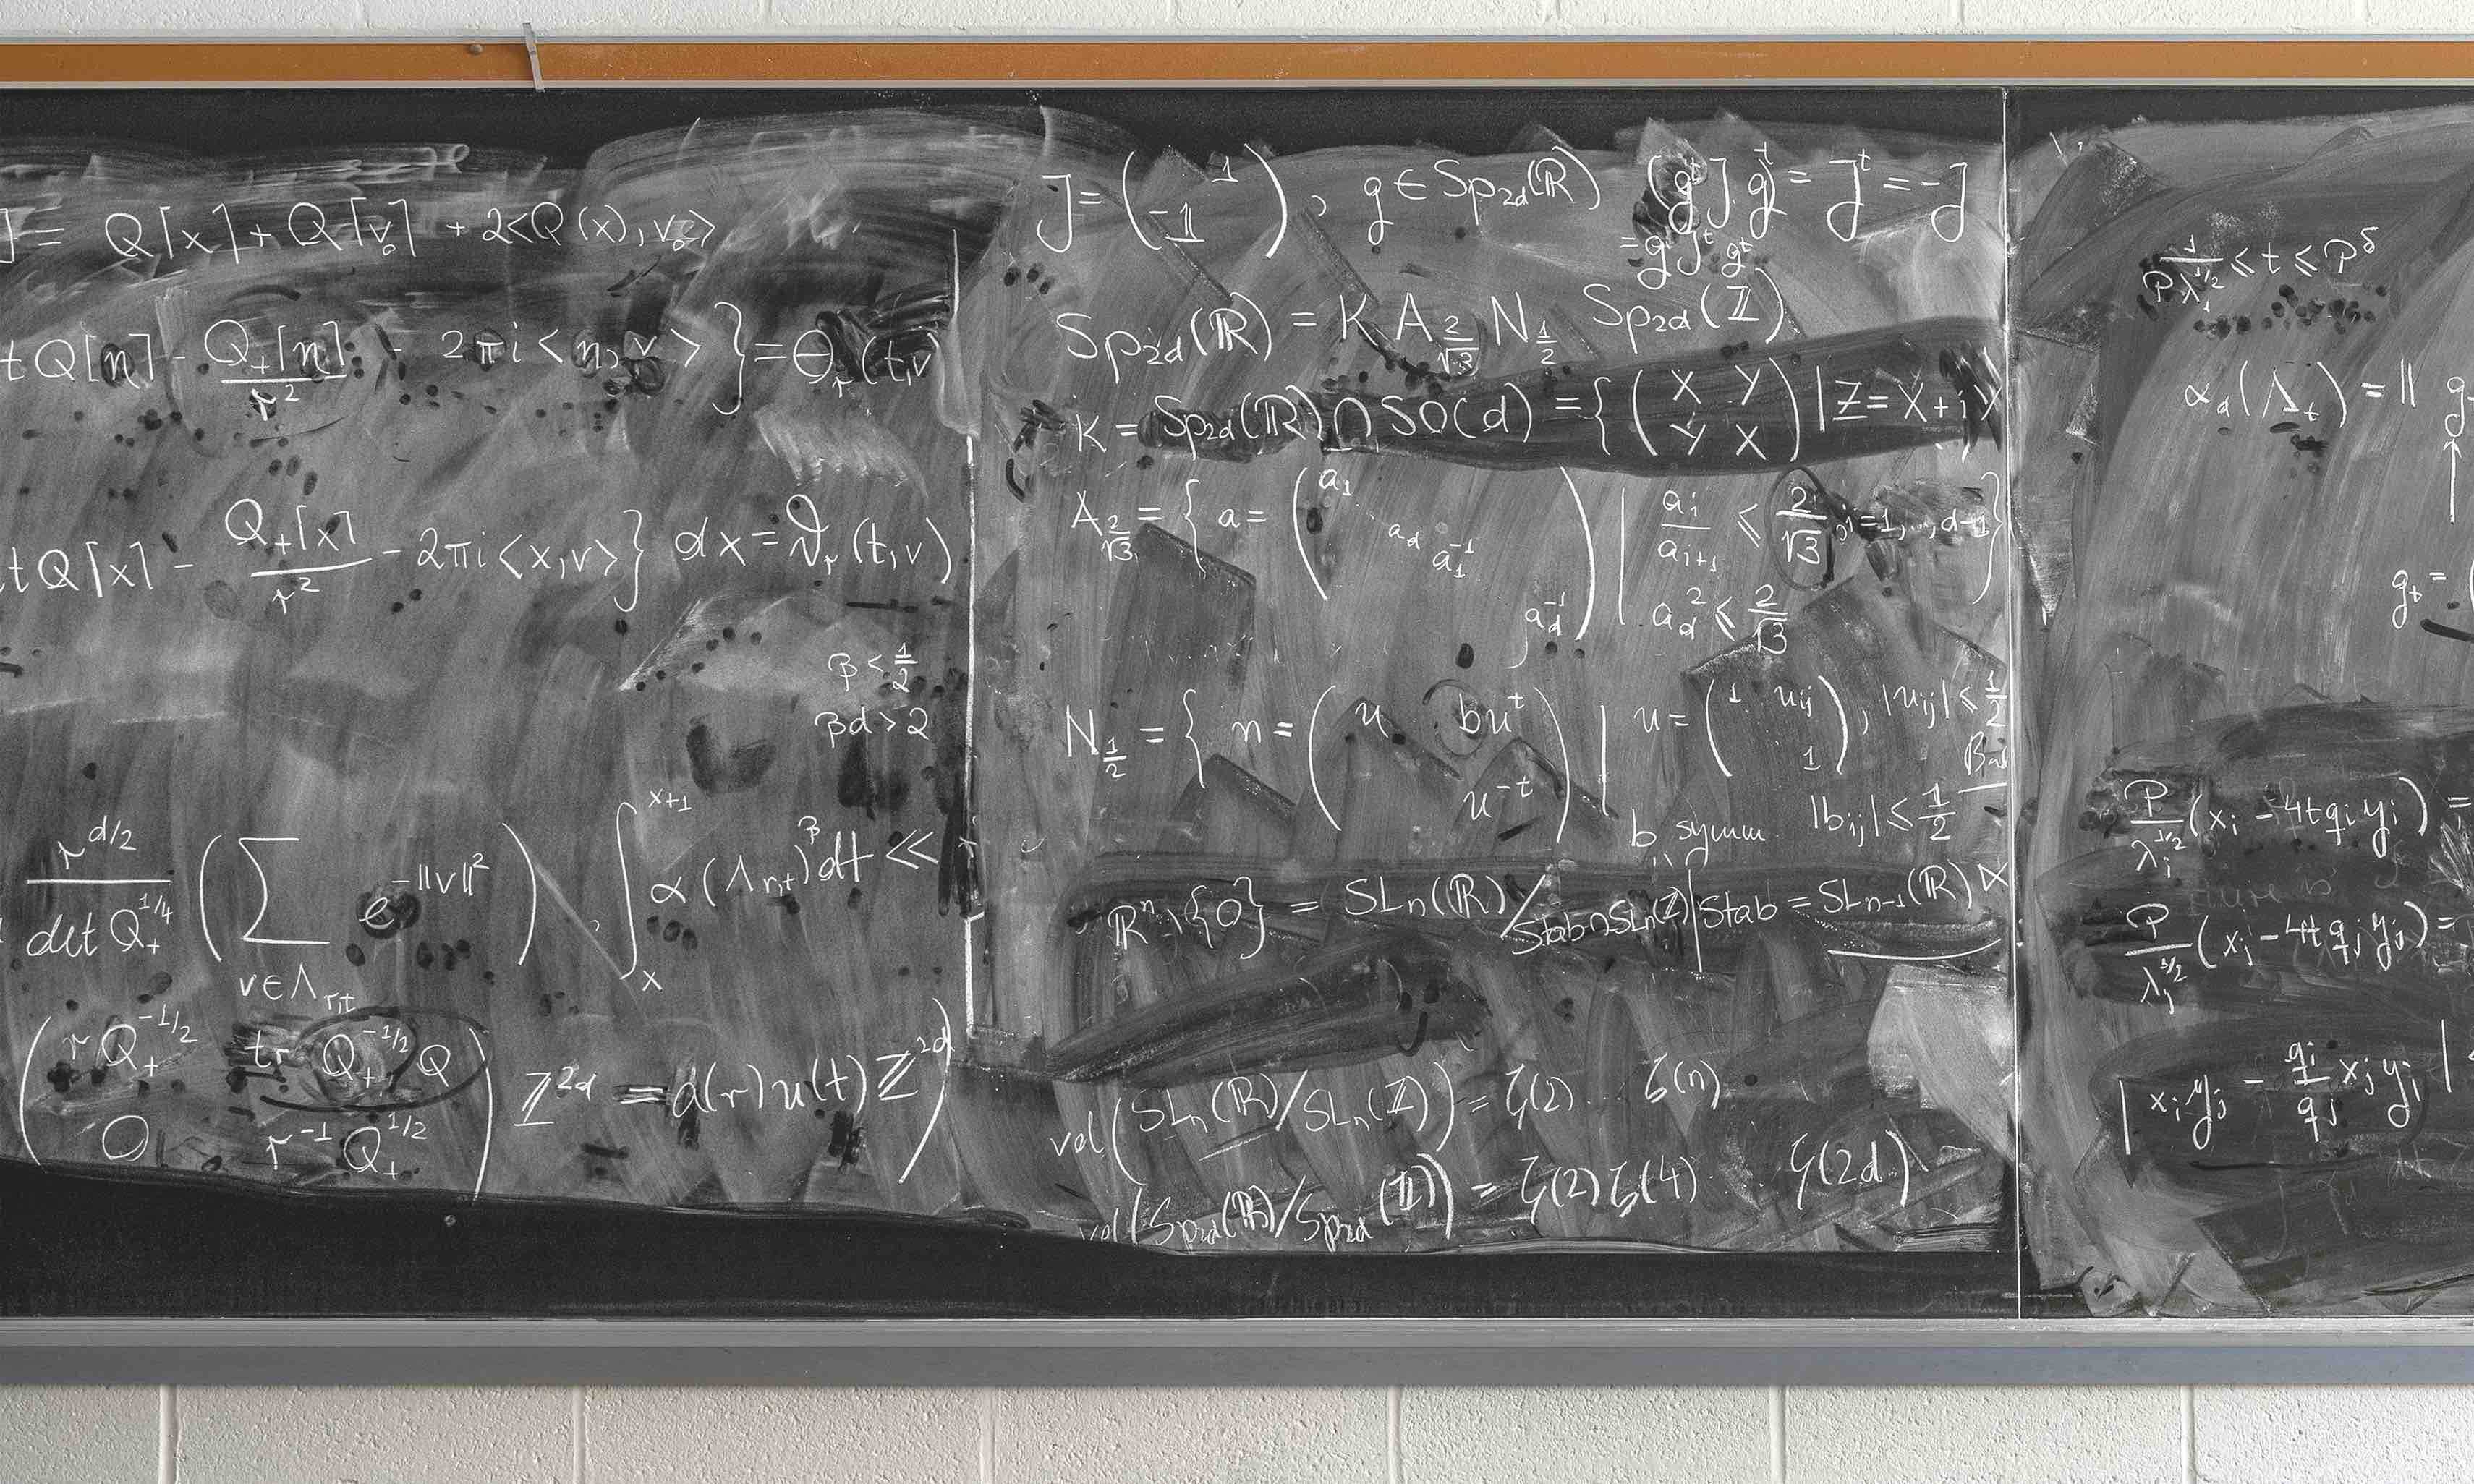 ] = Q[x] + Q[v₀] + 2<Q(x), v₀>
tQ[n] - Q₊[n]/r² - 2πi<n, v>} = θᵣ(t,v)
tQ[x] - Q₊[x]/r² - 2πi<x,v>} dx = ϑᵣ(t,v)
β < 1/2
βd > 2
r^{d/2} / det Q₊^{1/4} ( Σ_{v∈Λ_{r,t}} e^{-||v||²} ), ∫_x^{x+1} α(Λ_{r,t})^β dt ≪
( rQ₊^{-1/2} tr Q₊^{-1/2} Q
0 r^{-1} Q₊^{1/2} ) ℤ^{2d} = d(r)u(t)ℤ^{2d} )
J = ( 1
-1 ), g ∈ Sp₂d(ℝ) (gᵗJ g)ᵗ = Jᵗ = -J
= gᵗ Jᵗ g
Sp₂d(ℝ) = K A_{2/√3} N_{1/2} Sp₂d(ℤ)
K = Sp₂d(ℝ) ∩ SO(d) = { ( X Y
-Y X ) | Z = X + iY
A_{2/√3} = { a = ( a₁ ⋱ a_d a₁⁻¹ ⋱ a_d⁻¹ ) | a_i/a_{i+1} ≤ 2/√3, i=1,...,d-1 }
a_d² ≤ 2/√3
N_{1/2} = { n = ( u bu^t
u^{-t} ) | u = ( 1 u_ij
1 ), |u_ij| ≤ 1/2
b symm. |b_ij| ≤ 1/2
ℝⁿ\{0} = SLₙ(ℝ)/Stab∩SLₙ(ℤ) | Stab = SLₙ₋₁(ℝ) ⋉
vol( SLₙ(ℝ)/SLₙ(ℤ) ) = ζ(2) ... ζ(n)
vol( Sp₂d(ℝ)/Sp₂d(ℤ) ) = ζ(2)ζ(4) ... ζ(2d)
1/(Pλ₁^{1/2}) ≤ t ≤ P^δ
α_d(Λ_t) = || g
g_t = (
P/λ_i^{1/2} (x_i - 4t q_i y_i) =
P/λ_j^{1/2} (x_j - 4t q_j y_j) =
| x_i y_j - q_i/q_j x_j y_i |